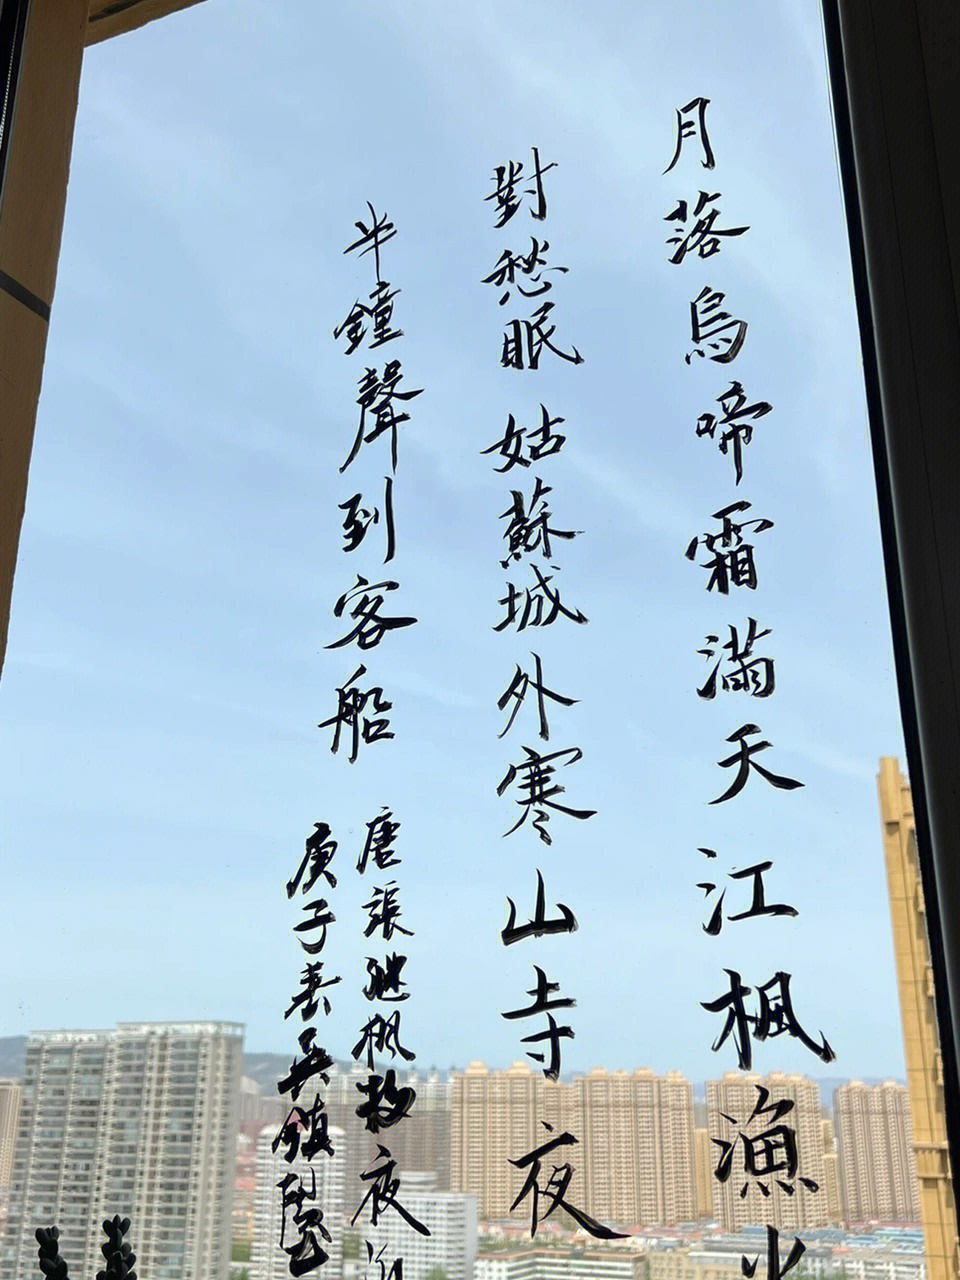 月落烏啼霜滿天江楓漁火
對愁眠姑蘇城外寒山寺夜
半鐘聲到客船
唐張繼楓橋夜泊
庚子春吳鎮